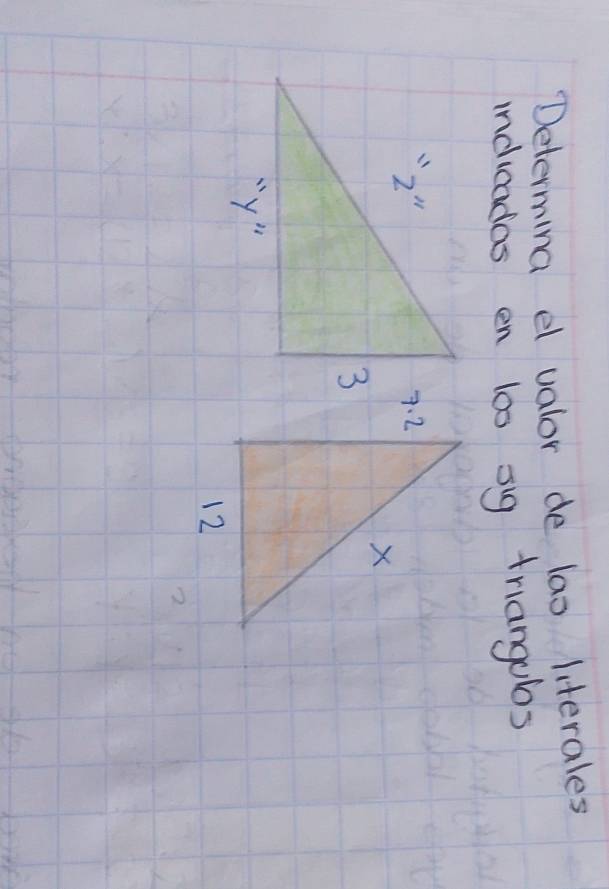 Determina el valor de las literales
indicadas en los sig triangulos
"z"
"y"
3
7.2
x
12